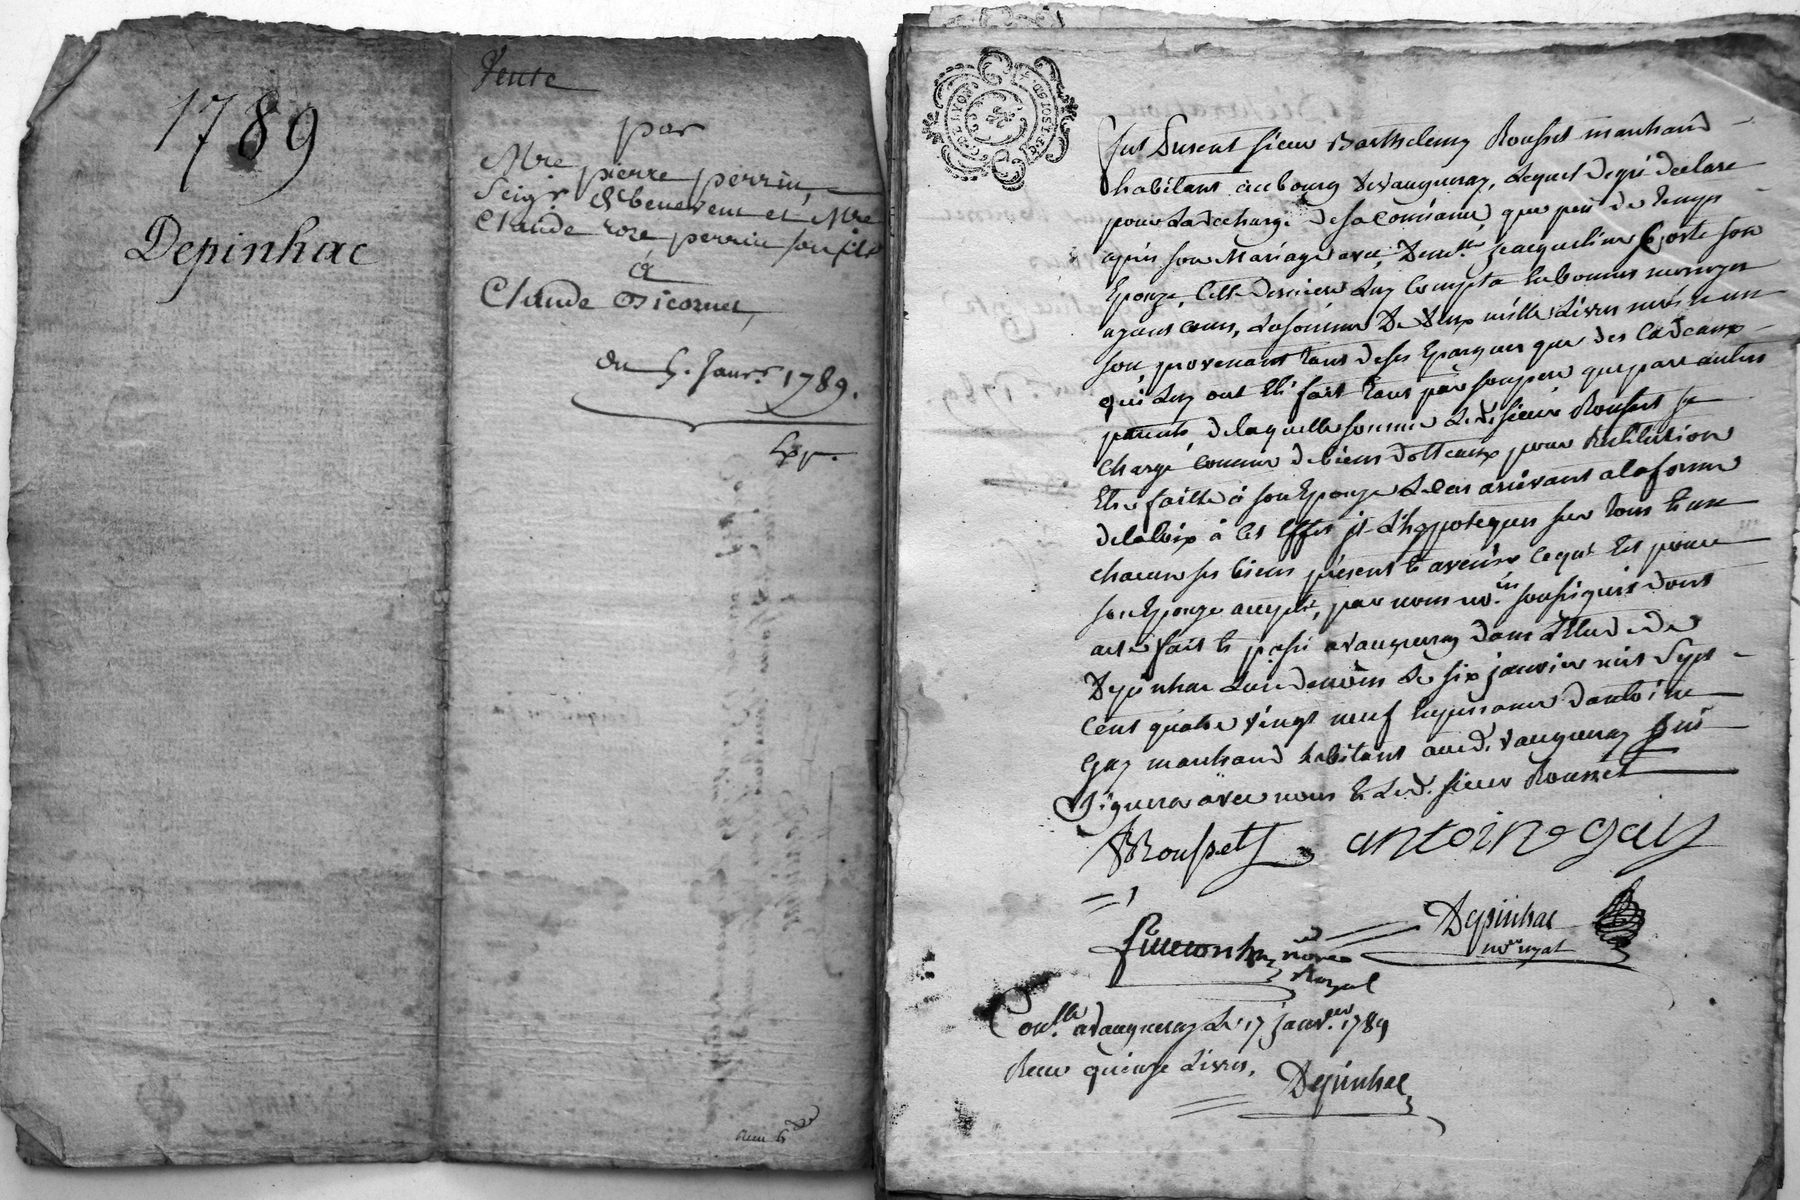 1789
Depinhac
Vente
par
Mre pierre perrin,
Seigr de benevent et Mre
Claude roze perrin son fils
à
Claude Bicornet,
du 5. Janvr. 1789.
Exp.
GEN. LYON
Fut Present sieur Barthelemy Rousset marchand
habitant au bourg de Vaugneray, Lequel de gré declare
pour La decharge de sa Consiance que peu de temps
après son Mariage avec Demlle jacqueline Gorte son
Epouze, Cette derniere Luy Compta En bonnes monnoyes
ayant cours, La somme De deux mille Livres
provenant tant de ses Epargnes que des Cadeaux
qui Luy ont Eté fait tant par son pere que par autres
parents, de laquelle somme Ledt sieur Rousset se
charge comme de biens dotteaux pour Restitution
Etre faitte à son Epouze Le cas arrivant a la forme
de la Loix à Cet Effet jl L'hyppoteque sur tous Et un
chacun ses biens présent Et avenir Ce qui Est pour
son Epouze accepté, par nous nores soussignés dont
acte fait Et passé a Vaugneray dans L'Etude de
Depinhac L'un de nous Le six janvier mil Sept
Cent quatre vingt neuf En presence d'antoine
Gay marchand habitant audt. Vaugneray qui
Signera avec nous Et Ledt. sieur Rousset
Rousset
antoine gay
nore
Royal
Depinhac
nore royal
Conlle a Vaugneray Le 17 janvier 1789
Recu quinze Livres,
Depinhac